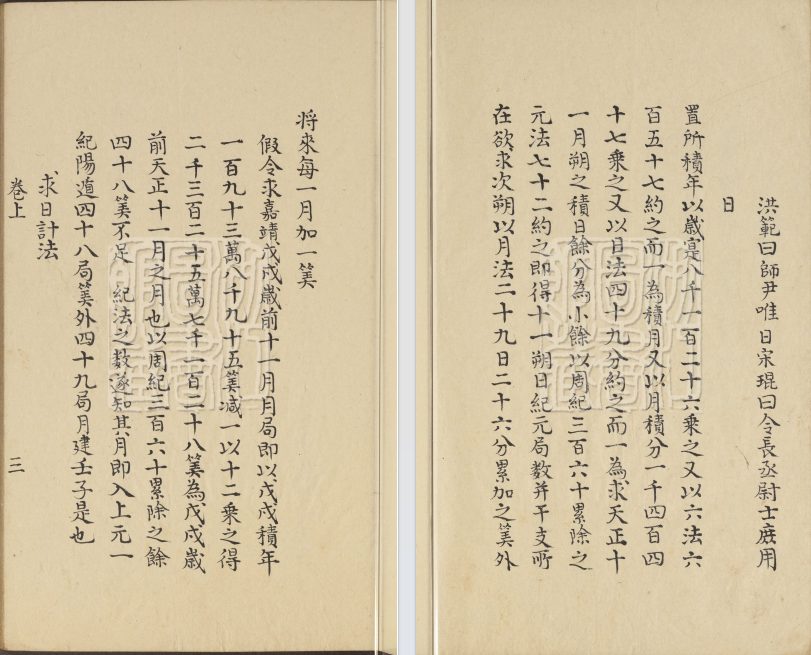 将來每一月加一筭
假令求嘉靖戊戌歲前十一月月局即以戊戌積年
一百九十三萬八千九十五筭减一以十二乘之得
二千三百二十五萬七千一百二十八筭為戊戌歲
前天正十一月之月也以周紀三百六十累除之餘
四十八筭不足 紀法之数遂知其月即入上元一
紀陽道四十八局筭外四十九局月建壬子是也
求日計法
卷上 三
洪範曰師尹唯日宋琨曰令長丞尉士庶用
日
置所積年以歲寔八千一百二十六乘之又以六法六
百五十七約之而一為積月又以月積分一千四百四
十七乘之又以日法四十九分約之而一為求天正十
一月朔之積日餘分為小餘以周紀三百六十累除之
元法七十二約之即得十一朔日紀元局数并干支所
在欲求次朔以月法二十九日二十六分累加之筭外